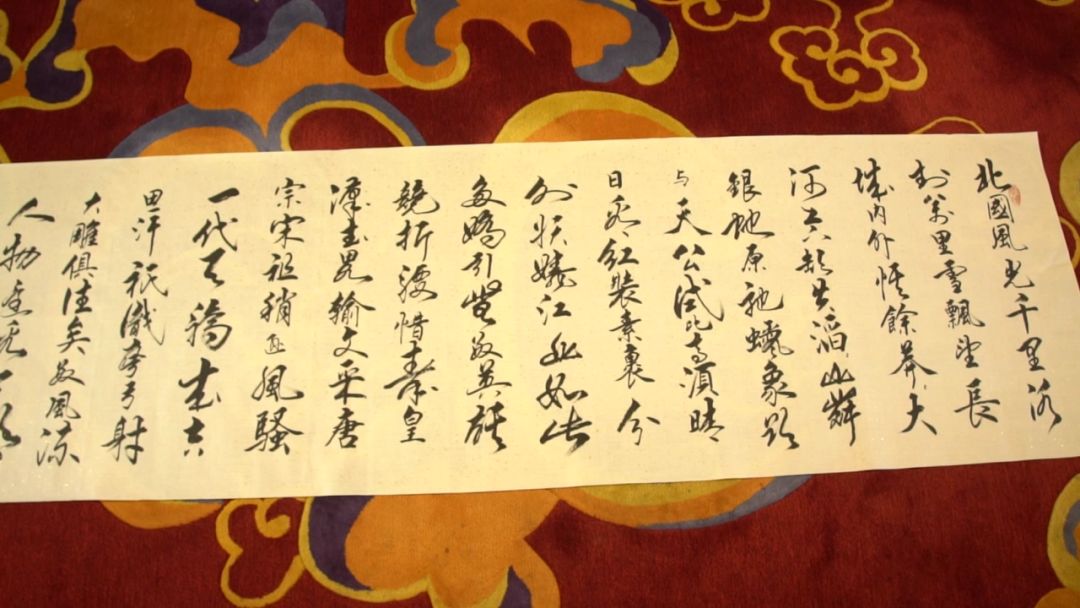 北國風光千里冰
封萬里雪飄望長
城内外惟餘莽大
河上下頓失滔山舞
銀蛇原馳蠟象欲
与天公試比高須晴
日看紅裝素裹分
外妖嬈江山如此
多嬌引無數英雄
競折腰惜秦皇
漢武略輸文采唐
宗宋祖稍遜風騷
一代天驕成吉
思汗祇識彎弓射
大雕俱往矣數風流
人物還看今